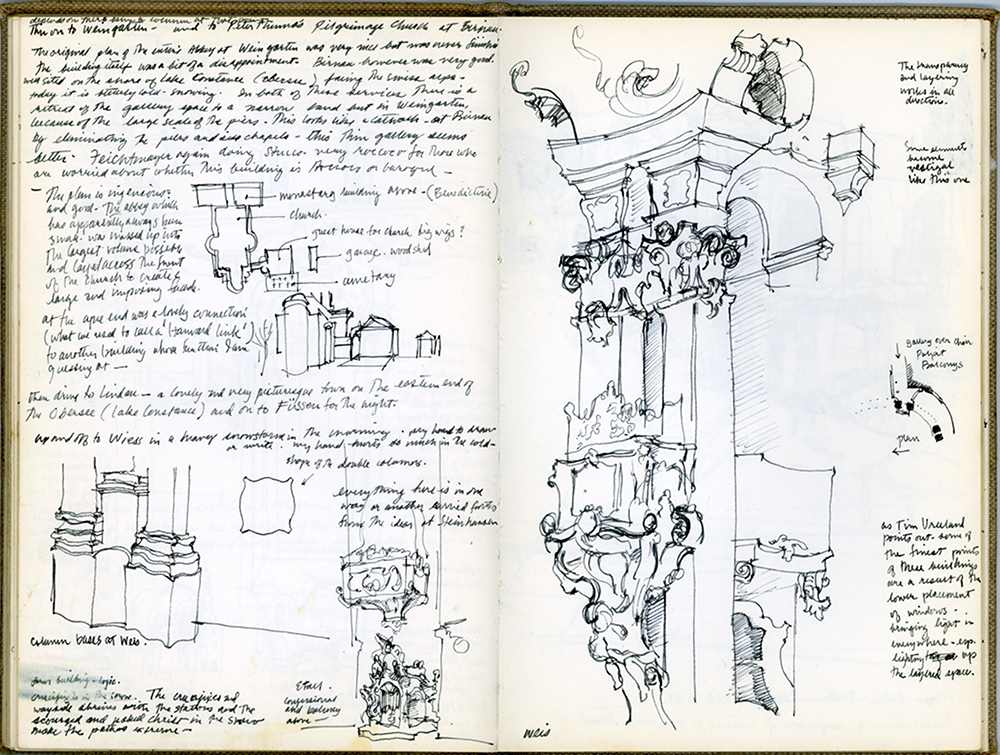 Then on to Weingarten - and to Peter Thumb's Pilgrimage Church at Birnau.
The original plan of the entire Abbey at Weingarten was very nice but was never finished
the building itself was a bit of a disappointment. Birnau however was very good.
well sited on the shore of Lake Constance (Obersee) facing the swiss alps -
today it is bitterly cold - snowing. In both of these services there is a
of the gallery space to a narrow band but in Weingarten,
because of the large scale of the piers - This looks like a catwalk - at Birnau
by eliminating the piers and side chapels - this thin gallery seems
better. Feichtmayer again doing stucco - very rococo for those who
are worried about whether this building is rococo or baroque -
- The plan is ingenious
and good - The abbey which
has apparently always been
small was massed up into
the largest volume possible
and layed across the front
of the church to create a
large and imposing facade.
at the apse end was a lovely connection
(what we used to call a 'harvard link')
to another building above functions I am
guessing at -
monastery building above - (Benedictine)
church.
guest house for church big wigs?
garage. woodshed
cemetary
then drive to Lindau - a lovely and very picturesque town on the eastern end of
the Obersee (Lake Constance) and on to Füssen for the night.
up and off to Wiess in a heavy snowstorm in the morning - very hard to draw
or write. my hand hurts so much in the cold -
shape of the double columns.
everything here is in one
way or another carried forth
from the ideas at Steinhausen
column bases at Weis.
building - logic.
crucifix is in the snow. The crucifixes and
wayside shrines with the stations and the
scourged and naked Christ in the snow
make the pathos extreme -
Ettal.
confessional
and balcony
above -
The transparency
and layering
works in all
direction.
Some elements
become
vestigal
like this one
gallery over choir
Pulpit
Balconys
plan
as Tim Vreeland
points out - some of
the finest points
of these buildings
are a result of the
lower placement
of windows -
bringing light in
everywhere - esp.
lighting up
the layered space.
weis